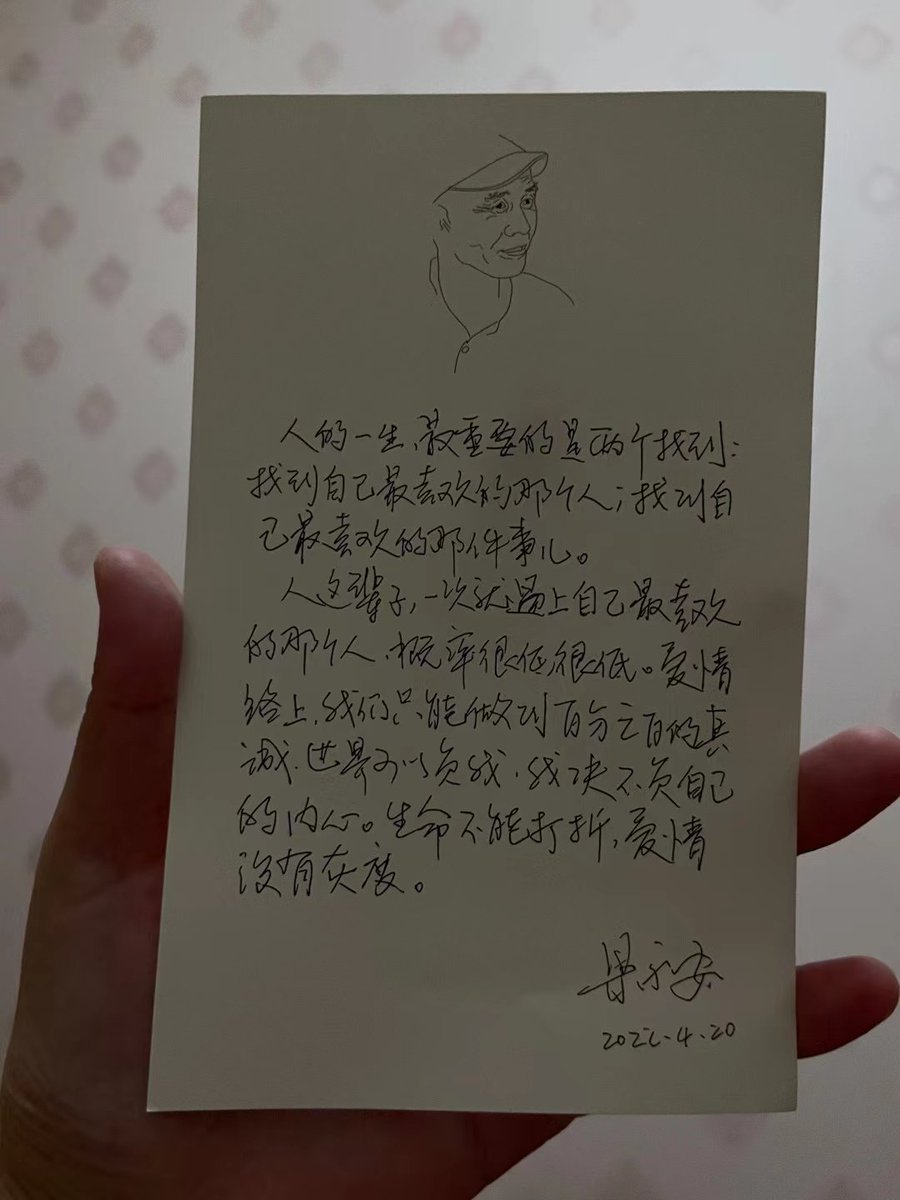 人的一生,最重要的是两个找到:
找到自己最喜欢的那个人;找到自
己最喜欢的那件事儿。
人这辈子,一次就遇上自己最喜欢
的那个人,概率很低很低。爱情
路上,我们只能做到百分之百的真
诚,世界可以负我,我决不负自己
的内心。生命不能打折,爱情
没有灰度。
梁永安
2022.4.20